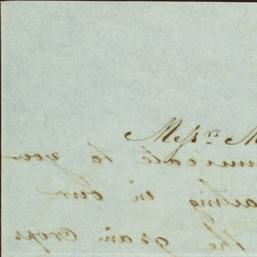 Mess.rs M
municate to you
in our
the grain Crops